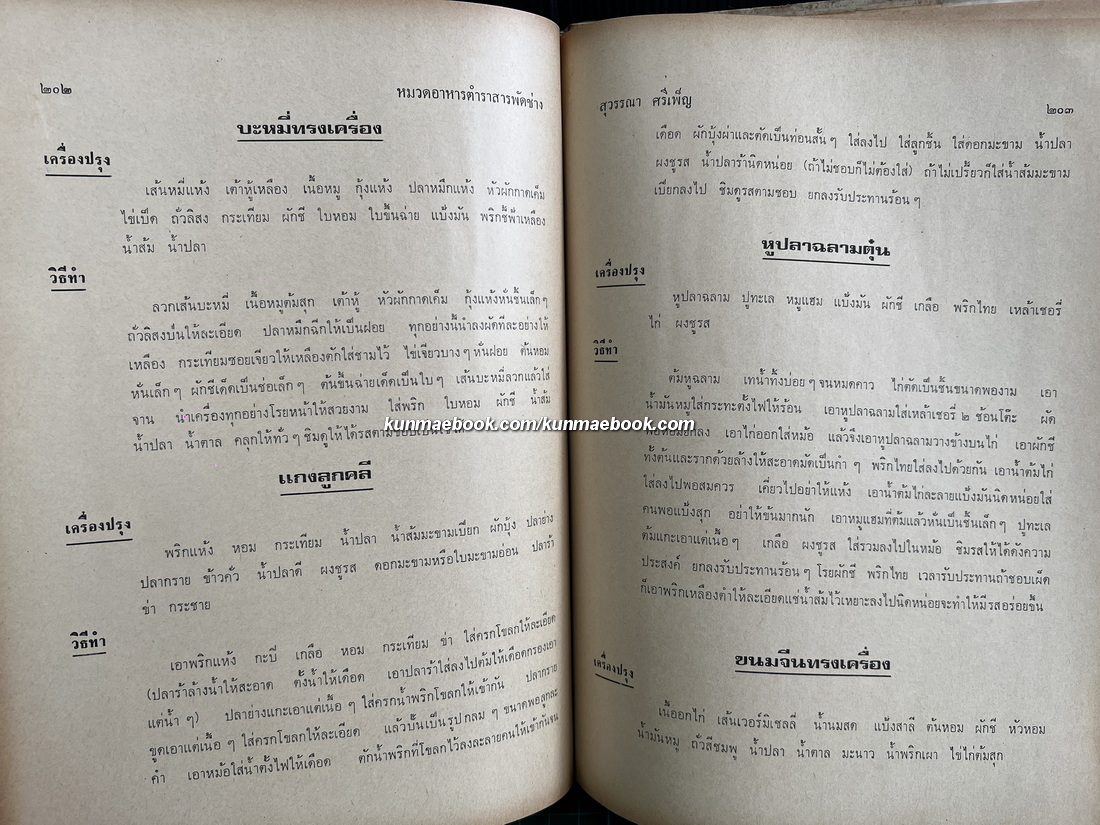 ๒๐๒
หมวดอาหารตำราสารพัดช่าง
บะหมี่ทรงเครื่อง
เครื่องปรุง
เส้นหมี่แห้ง เต้าหู้เหลือง เนื้อหมู กุ้งแห้ง ปลาหมึกแห้ง หัวผักกาดเค็ม
ไข่เป็ด ถั่วลิสง กระเทียม ผักชี ใบหอม ใบขึ้นฉ่าย แป้งมัน พริกชี้ฟ้าเหลือง
น้ำส้ม น้ำปลา
วิธีทำ
ลวกเส้นบะหมี่ เนื้อหมูต้มสุก เต้าหู้ หัวผักกาดเค็ม กุ้งแห้งหั่นชิ้นเล็กๆ
ถั่วลิสงป่นให้ละเอียด ปลาหมึกฉีกให้เป็นฝอย ทุกอย่างนี้นำลงผัดทีละอย่างให้
เหลือง กระเทียมซอยเจียวให้เหลืองตักใส่ชามไว้ ไข่เจียวบางๆหั่นฝอย ต้นหอม
หั่นเล็กๆ ผักชีเด็ดเป็นช่อเล็กๆ ต้นขึ้นฉ่ายเด็ดเป็นใบๆ เส้นบะหมี่ลวกแล้วใส่
จาน นำเครื่องทุกอย่างโรยหน้าให้สวยงาม ใส่พริก ใบหอม ผักชี น้ำส้ม
น้ำปลา น้ำตาล คลุกให้ทั่วๆชิมดูให้ได้รสตามชอบ
แกงลูกคลี
เครื่องปรุง
พริกแห้ง หอม กระเทียม น้ำปลา น้ำส้มมะขามเปียก ผักบุ้ง ปลาย่าง
ปลากราย ข้าวคั่ว น้ำปลาดี ผงชูรส ดอกมะขามหรือใบมะขามอ่อน ปลาร้า
ข่า กระชาย
วิธีทำ
เอาพริกแห้ง กะปี เกลือ หอม กระเทียม ข่า ใส่ครกโขลกให้ละเอียด
(ปลาร้าล้างน้ำให้สะอาด ตั้งน้ำให้เดือด เอาปลาร้าใส่ลงไปต้มให้เดือดกรองเอา
แต่น้ำๆ) ปลาย่างแกะเอาแต่เนื้อๆ ใส่ครกน้ำพริกโขลกให้เข้ากัน ปลากราย
ขูดเอาแต่เนื้อๆ ใส่ครกโขลกให้ละเอียด แล้วปั้นเป็นรูปกลมๆ ขนาดพอลูกละ
คำ เอาหม้อใส่น้ำตั้งไฟให้เดือด ตักน้ำพริกที่โขลกไว้ลงละลายคนให้เข้ากันจน
สุวรรณา ศรีเพ็ญ
๒๐๓
เดือด ผักบุ้งผ่าและตัดเป็นท่อนสั้นๆ ใส่ลงไป ใส่ลูกชิ้น ใส่ดอกมะขาม น้ำปลา
ผงชูรส น้ำปลาร้านิดหน่อย (ถ้าไม่ชอบก็ไม่ต้องใส่) ถ้าไม่เปรี้ยวก็ใส่น้ำส้มมะขาม
เปียกลงไป ชิมดูรสตามชอบ ยกลงรับประทานร้อนๆ
หูปลาฉลามตุ๋น
เครื่องปรุง
หูปลาฉลาม ปูทะเล หมูแฮม แป้งมัน ผักชี เกลือ พริกไทย เหล้าเชอรี่
ไก่ ผงชูรส
วิธีทำ
ต้มหูฉลาม เทน้ำทิ้งบ่อยๆจนหมดคาว ไก่ตัดเป็นชิ้นขนาดพองาม เอา
น้ำมันหมูใส่กระทะตั้งไฟให้ร้อน เอาหูปลาฉลามใส่เหล้าเชอรี่ ๒ ช้อนโต๊ะ ผัด
kunmaebook.com/kunmaebook.com
พอหอมยกลง เอาไก่ออกใส่หม้อ แล้วจึงเอาหูปลาฉลามวางข้างบนไก่ เอาผักชี
ทั้งต้นและรากด้วยล้างให้สะอาดมัดเป็นกำๆ พริกไทยใส่ลงไปด้วยกัน เอาน้ำต้มไก่
ใส่ลงไปพอสมควร เคี่ยวไปอย่าให้แห้ง เอาน้ำต้มไก่ละลายแป้งมันนิดหน่อยใส่
คนพอแป้งสุก อย่าให้ข้นมากนัก เอาหมูแฮมที่ต้มแล้วหั่นเป็นชิ้นเล็กๆ ปูทะเล
ต้มแกะเอาแต่เนื้อๆ เกลือ ผงชูรส ใส่รวมลงไปในหม้อ ชิมรสให้ได้ดังความ
ประสงค์ ยกลงรับประทานร้อนๆ โรยผักชี พริกไทย เวลารับประทานถ้าชอบเผ็ด
ก็เอาพริกเหลืองตำให้ละเอียดแช่น้ำส้มไว้เหยาะลงไปนิดหน่อยจะทำให้มีรสอร่อยขึ้น
ขนมจีนทรงเครื่อง
เครื่องปรุง
เนื้ออกไก่ เส้นเวอร์มิเซลลี่ น้ำนมสด แป้งสาลี ต้นหอม ผักชี หัวหอม
น้ำมันหมู ถั่วสีชมพู น้ำปลา น้ำตาล มะนาว น้ำพริกเผา ไข่ไก่ต้มสุก